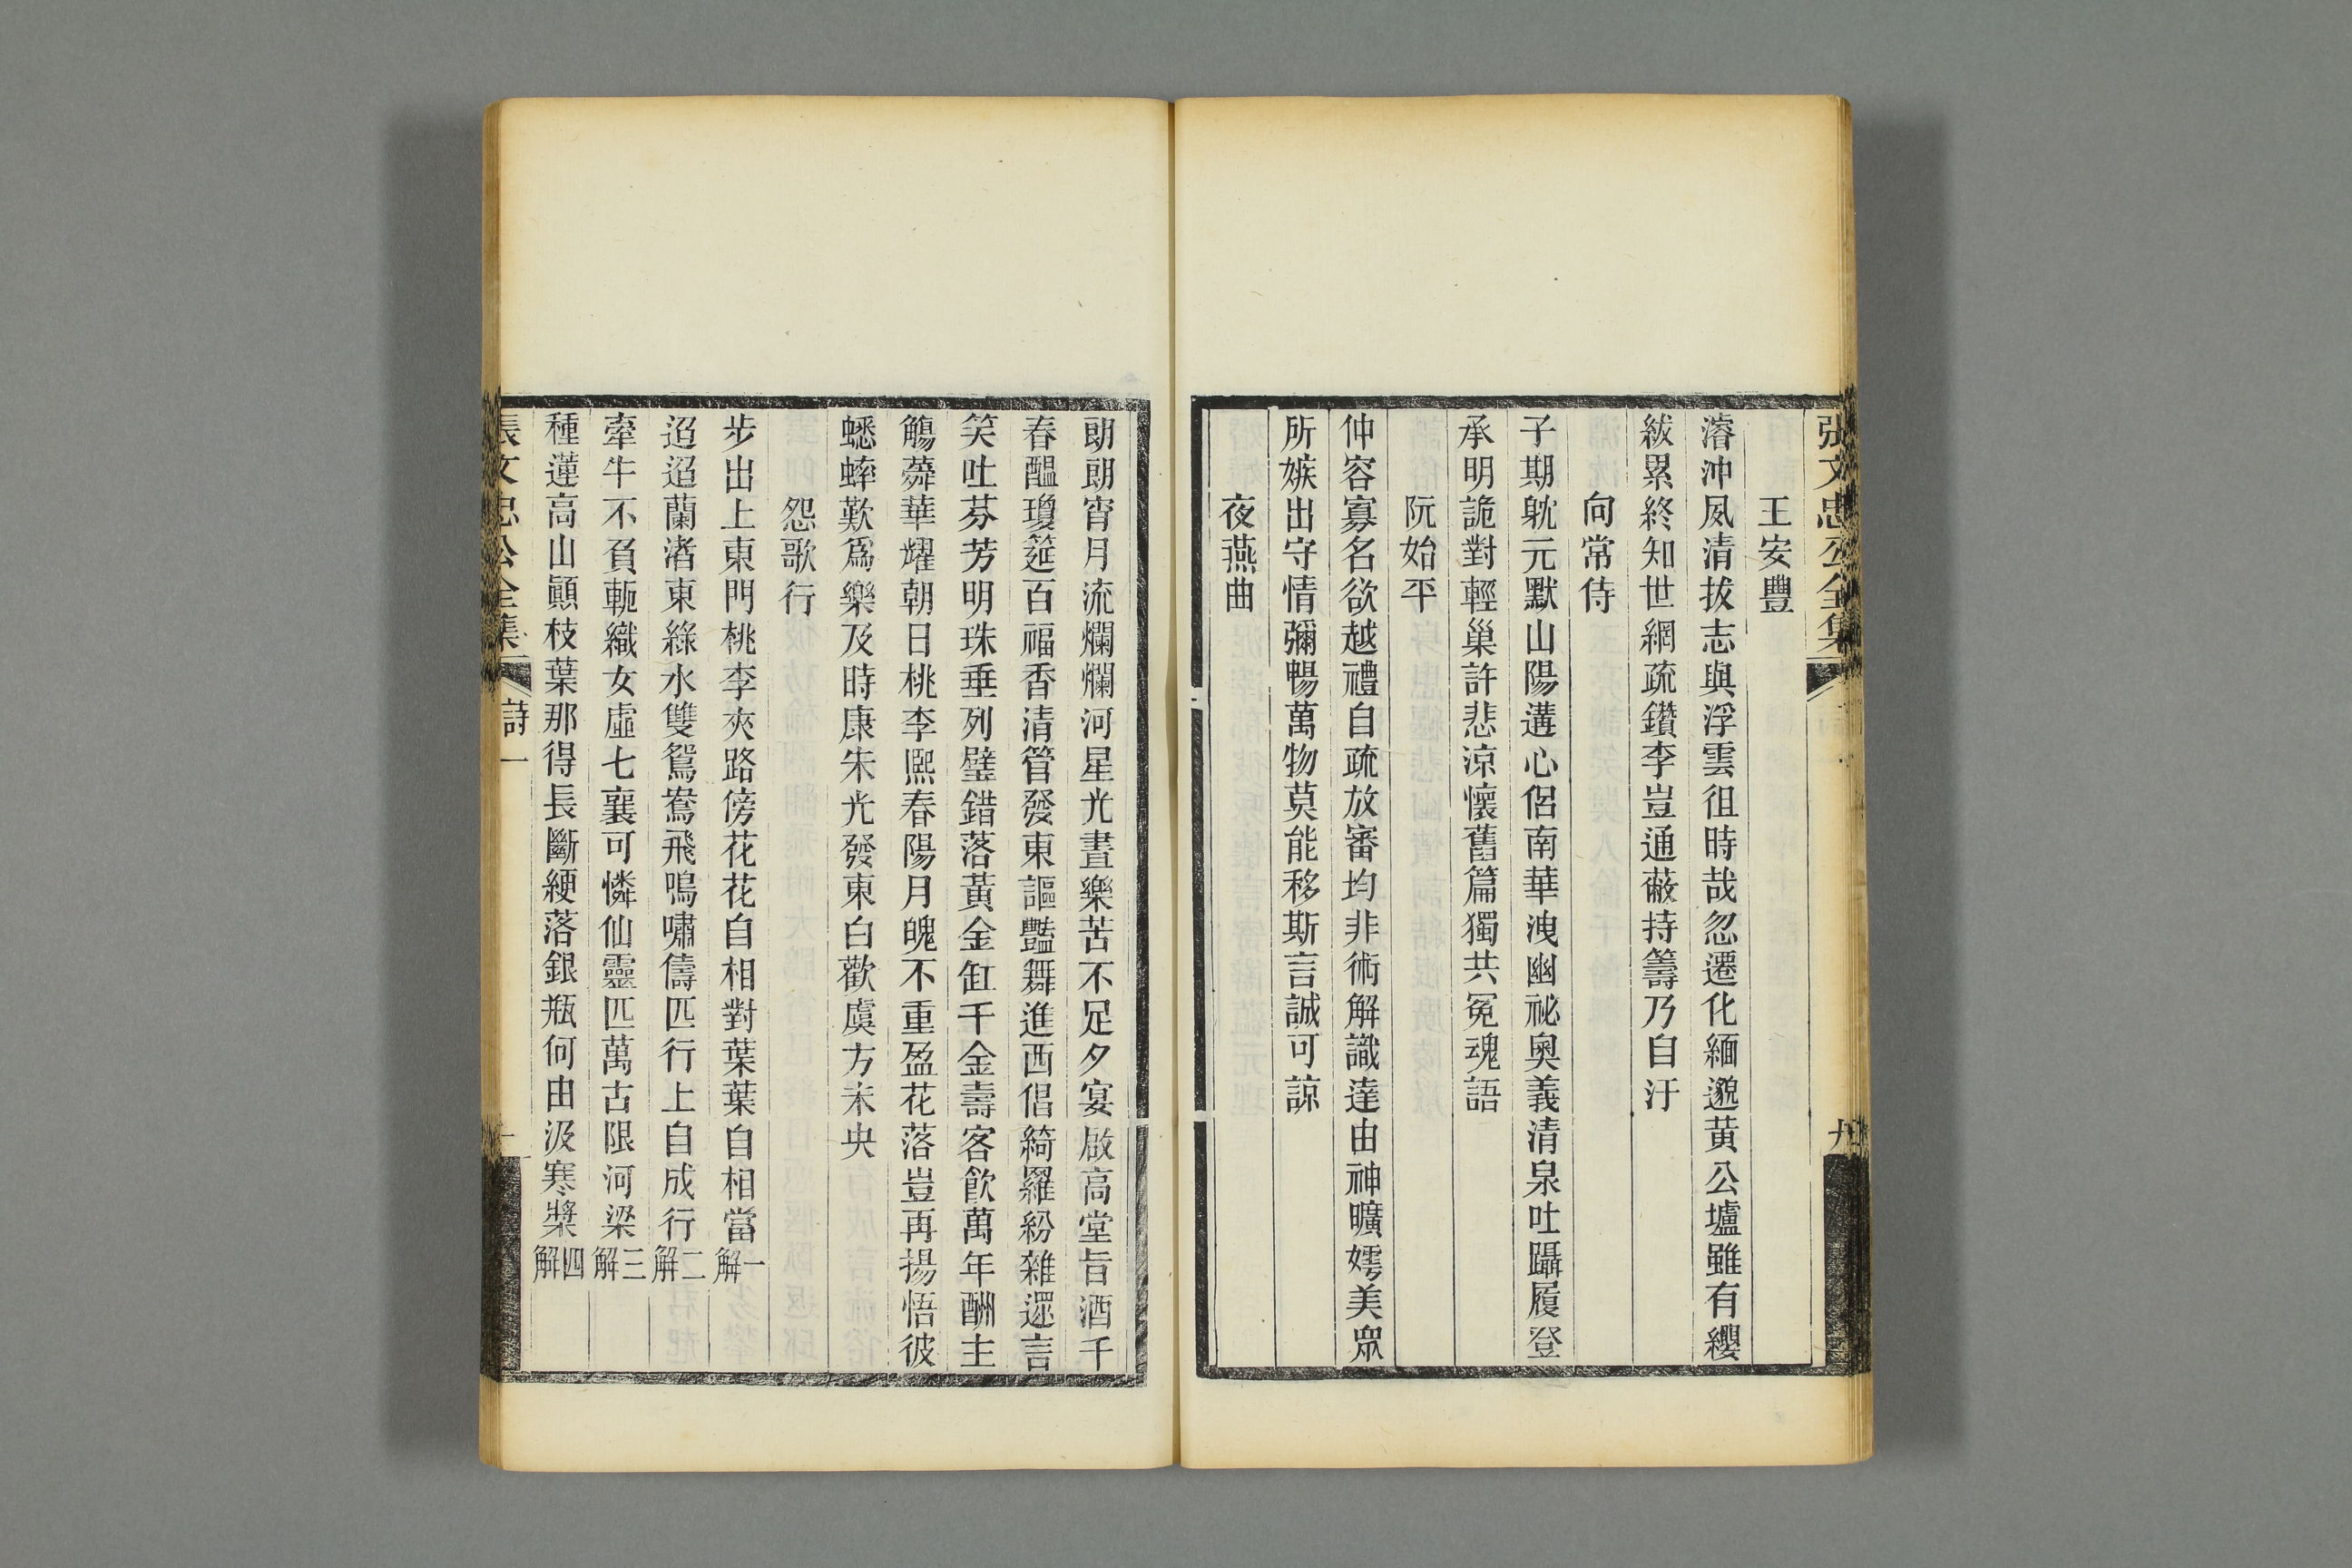 張文忠公全集
九
王安豐
濬冲夙清拔志與浮雲徂時哉忽遷化緬邈黃公壚雖有纓
紱累終知世網疏鑽李豈通蔽持籌乃自汙
向常侍
子期躭元默山陽遘心侶南華洩幽祕奧義清泉吐躡履登
承明詭對輕巢許悲涼懷舊篇獨共冤魂語
阮始平
仲容寡名欲越禮自疏放審均非術解識達由神曠嫮美眾
所嫉出守情彌暢萬物莫能移斯言誠可諒
夜燕曲
朗朗宵月流爛爛河星光晝樂苦不足夕宴啟高堂旨酒千
春醞瓊筵百福香清管發東謳豔舞進西倡綺羅紛雜遝言
笑吐芬芳明珠垂列璧錯落黃金缸千金壽客飲萬年酬主
觴蕣華耀朝日桃李熙春陽月魄不重盈花落豈再揚悟彼
蟋蟀歎爲樂及時康朱光發東白歡虞方未央
怨歌行
步出上東門桃李夾路傍花花自相對葉葉自相當一解
迢迢蘭渚東綠水雙鴛鴦飛鳴嘯儔匹行上自成行二解
牽牛不負軛織女虛七襄可憐仙靈匹萬古限河梁三解
種蓮高山顚枝葉那得長斷綆落銀瓶何由汲寒漿四解
張文忠公全集
詩一